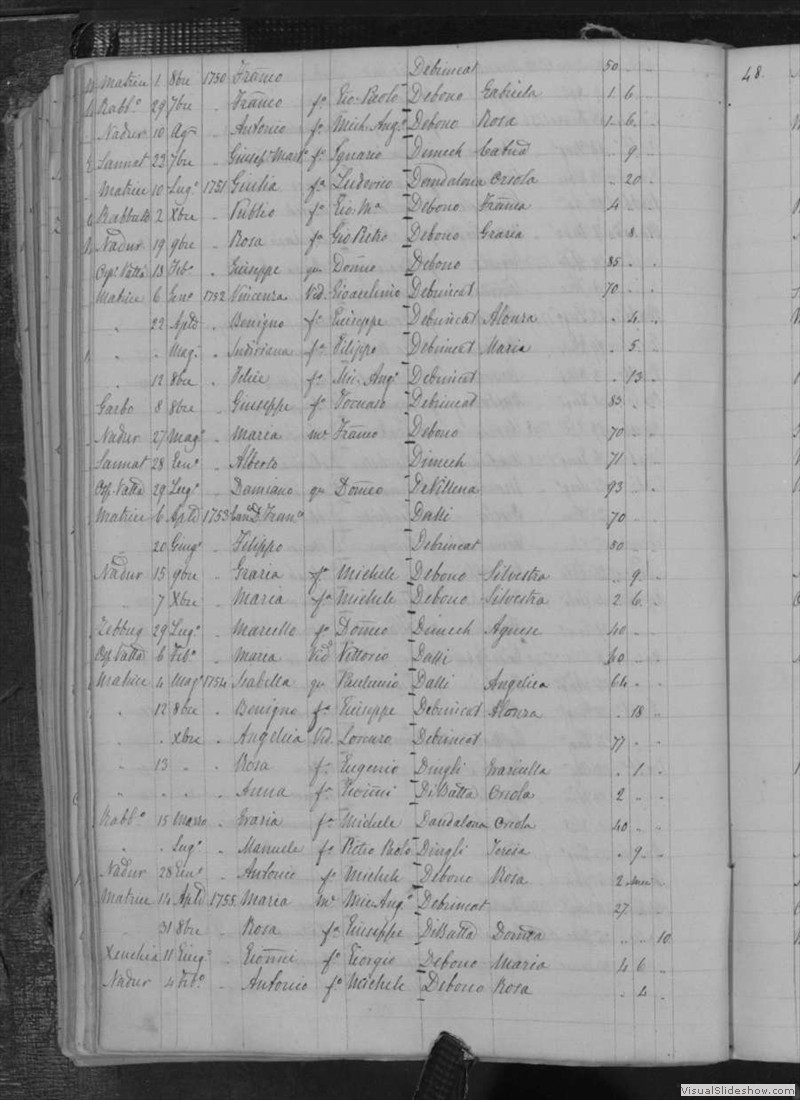 Matrice 1 8bre 1750 Franco Debrincat 50 " "
48.
Rabb.o 29 7bre " Franco f.o Gio Paolo Debono Gabriela 1 6 "
Nadur 10 Ag.to " Antonio f.o Mich. Ang.o Debono Rosa 1 6 "
Sannat 22 7bre " Giusep. f.o Ignazio Dimech " 9 "
Matrice 10 Lug.o 1751 Giulia f.a Ludovico Dandalona Orsola " 20 "
Rabbato 2 Xbre " Publio f.o Gio. M.a Debono Franca 4 " "
Nadur 19 9bre " Rosa f.a Gio Pietro Debono Grazia " 8 "
Osp. Vatta 18 Feb.o " Giuseppe qm Domco Debono 85 " "
Matrice 6 Gen.o 1752 Vincenza Vid. Gioacchino Debrincat 70 " "
" 22 Aple " Benigno f.o Giuseppe Debrincat Alonza " 4 "
" " Mag. " f.a Filippo Debrincat Maria " 5 "
" 12 8bre " Felice f.o Mic. Ang.o Debrincat " 13 "
Garbo 8 8bre " Giuseppe f.o Tomaso Debrincat 83 " "
Nadur 27 Mag.o " Maria m.e Franco Debono 70 " "
Sannat 28 Gen.o " Alberto Dimech 71 " "
Osp. Vatta 29 Lug.o " Damiano qm Domco DeVillena 93 " "
Matrice 6 Aple 1753 D. Fran.o Dalli 70 " "
" 20 Giug.o " Filippo Debrincat 50 " "
Nadur 15 9bre " Grazia f.a Michele Debono Silvestra " 9 "
" 7 Xbre " Maria f.a Michele Debono Silvestra 2 6 "
Zebbug 29 Lug.o " Marcello f.o Domco Dimech Agnese 40 " "
Osp. Vatta 6 Feb.o " Maria Vid.a Vittorio Dalli 60 " "
Matrice 4 Mag.o 1754 Isabella qm Paulinio Dalli Angelica 64 " "
" 12 8bre " Benigno f.o Giuseppe Debrincat Alonza " 18 "
" " Xbre " Angelica Vid. Lorenzo Debrincat 77 " "
" 13 " " Rosa f.a Eugenio Dingli Graziulla " 1 "
" " " " Anna f.a Gionni DiBatta Orsola 2 " "
Rabb.o 15 Marzo " Grazia f.a Michele Dandalona Orsola 40 " "
" " Lug.o " Manuele f.o Pietro Paolo Dingli Teresa " 9 "
Nadur 28 Gen.o " Antonio f.o Michele Debono Rosa 2 mesi
Matrice 14 Aple 1755 Maria m.e Mic Ang.o Debrincat 27 " "
" 31 8bre " Rosa f.a Giuseppe DiBatta Domca " " 10
Xeuchia 11 Giug.o " Gionni f.o Giorgio Debono Maria 4 6 "
Nadur 4 Feb.o " Antonio f.o Michele Debono Rosa " 4 "
VisualSlideshow.com